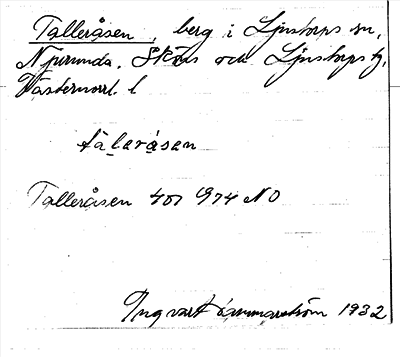 Talleråsen, berg i Ljustorps sn,
Njurunda, Sköns och Ljustorps tg,
Västernorrl. l
tàlerå̀sen
Talleråsen 407 974 NO
Ingvart Hammarström 1932